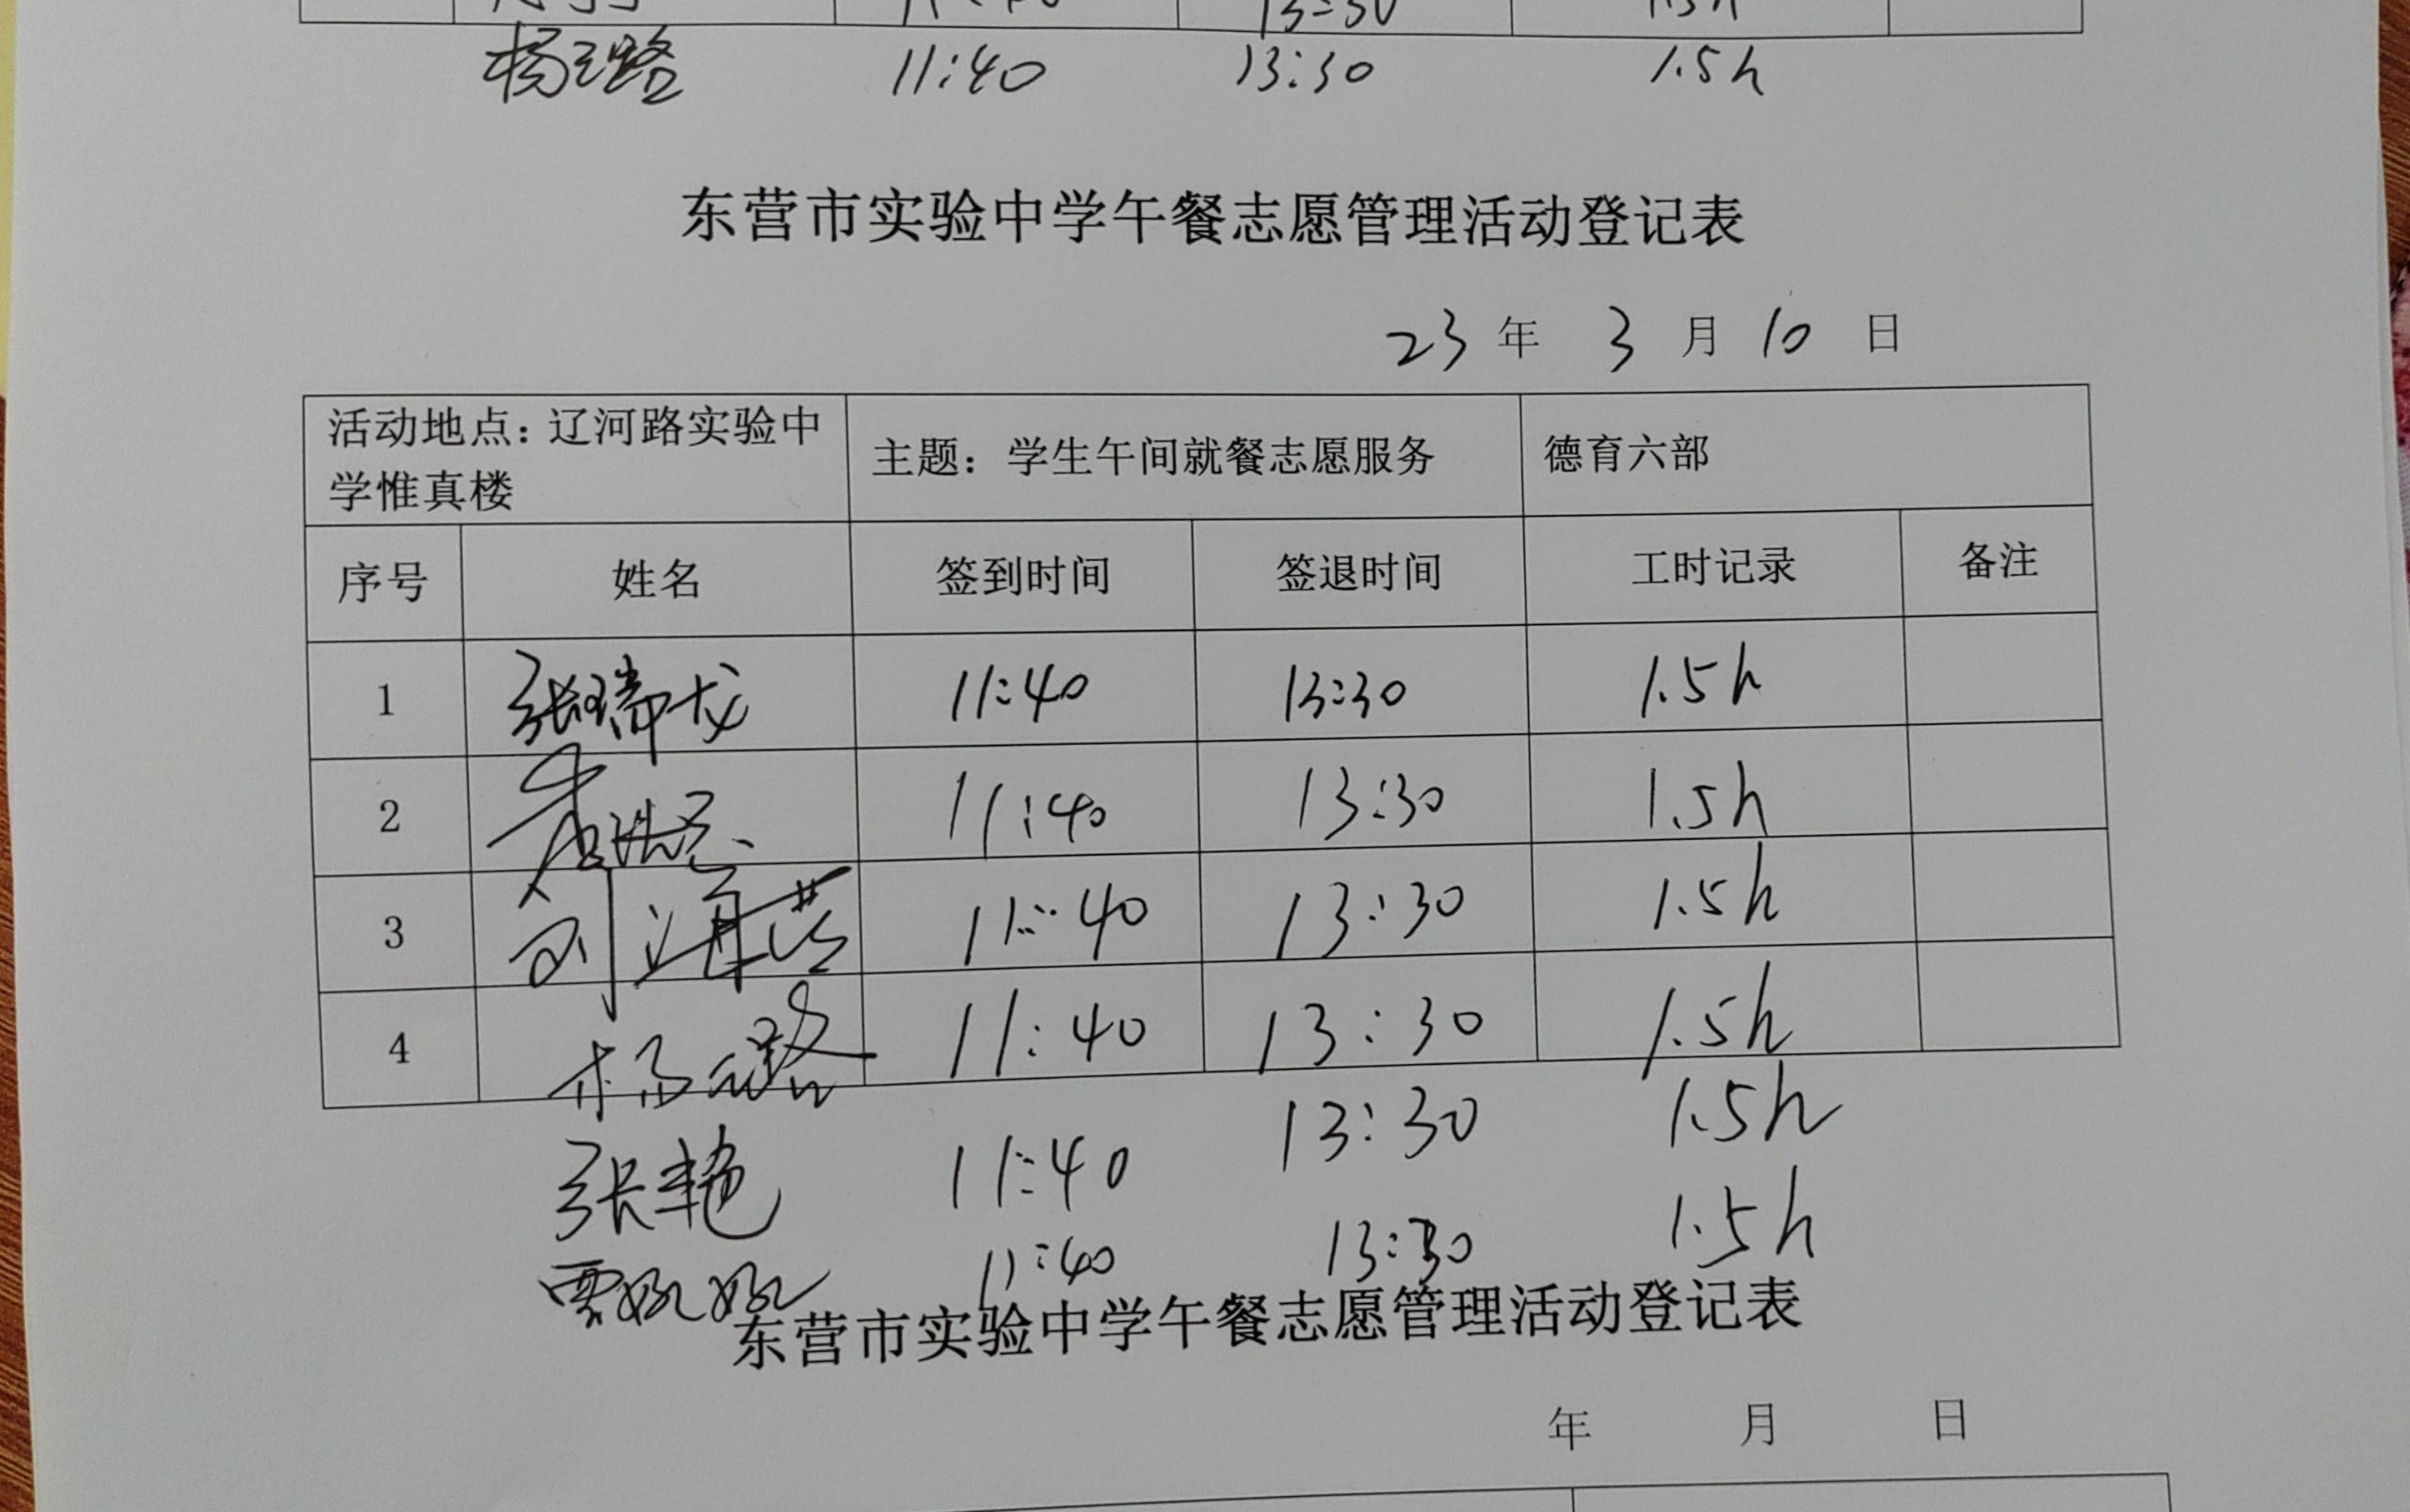 13:30 1.5h
11:40 13:30 1.5h
东营市实验中学午餐志愿管理活动登记表
23 年 3 月 10 日
活动地点：辽河路实验中学惟真楼 主题：学生午间就餐志愿服务 德育六部
序号 姓名 签到时间 签退时间 工时记录 备注
1 张瑞龙 11:40 13:30 1.5h
2 11:40 13:30 1.5h
3 刘海营 11:40 13:30 1.5h
4 11:40 13:30 1.5h
张艳 11:40 13:30 1.5h
贾姣姣 11:40 13:30 1.5h
东营市实验中学午餐志愿管理活动登记表
年 月 日